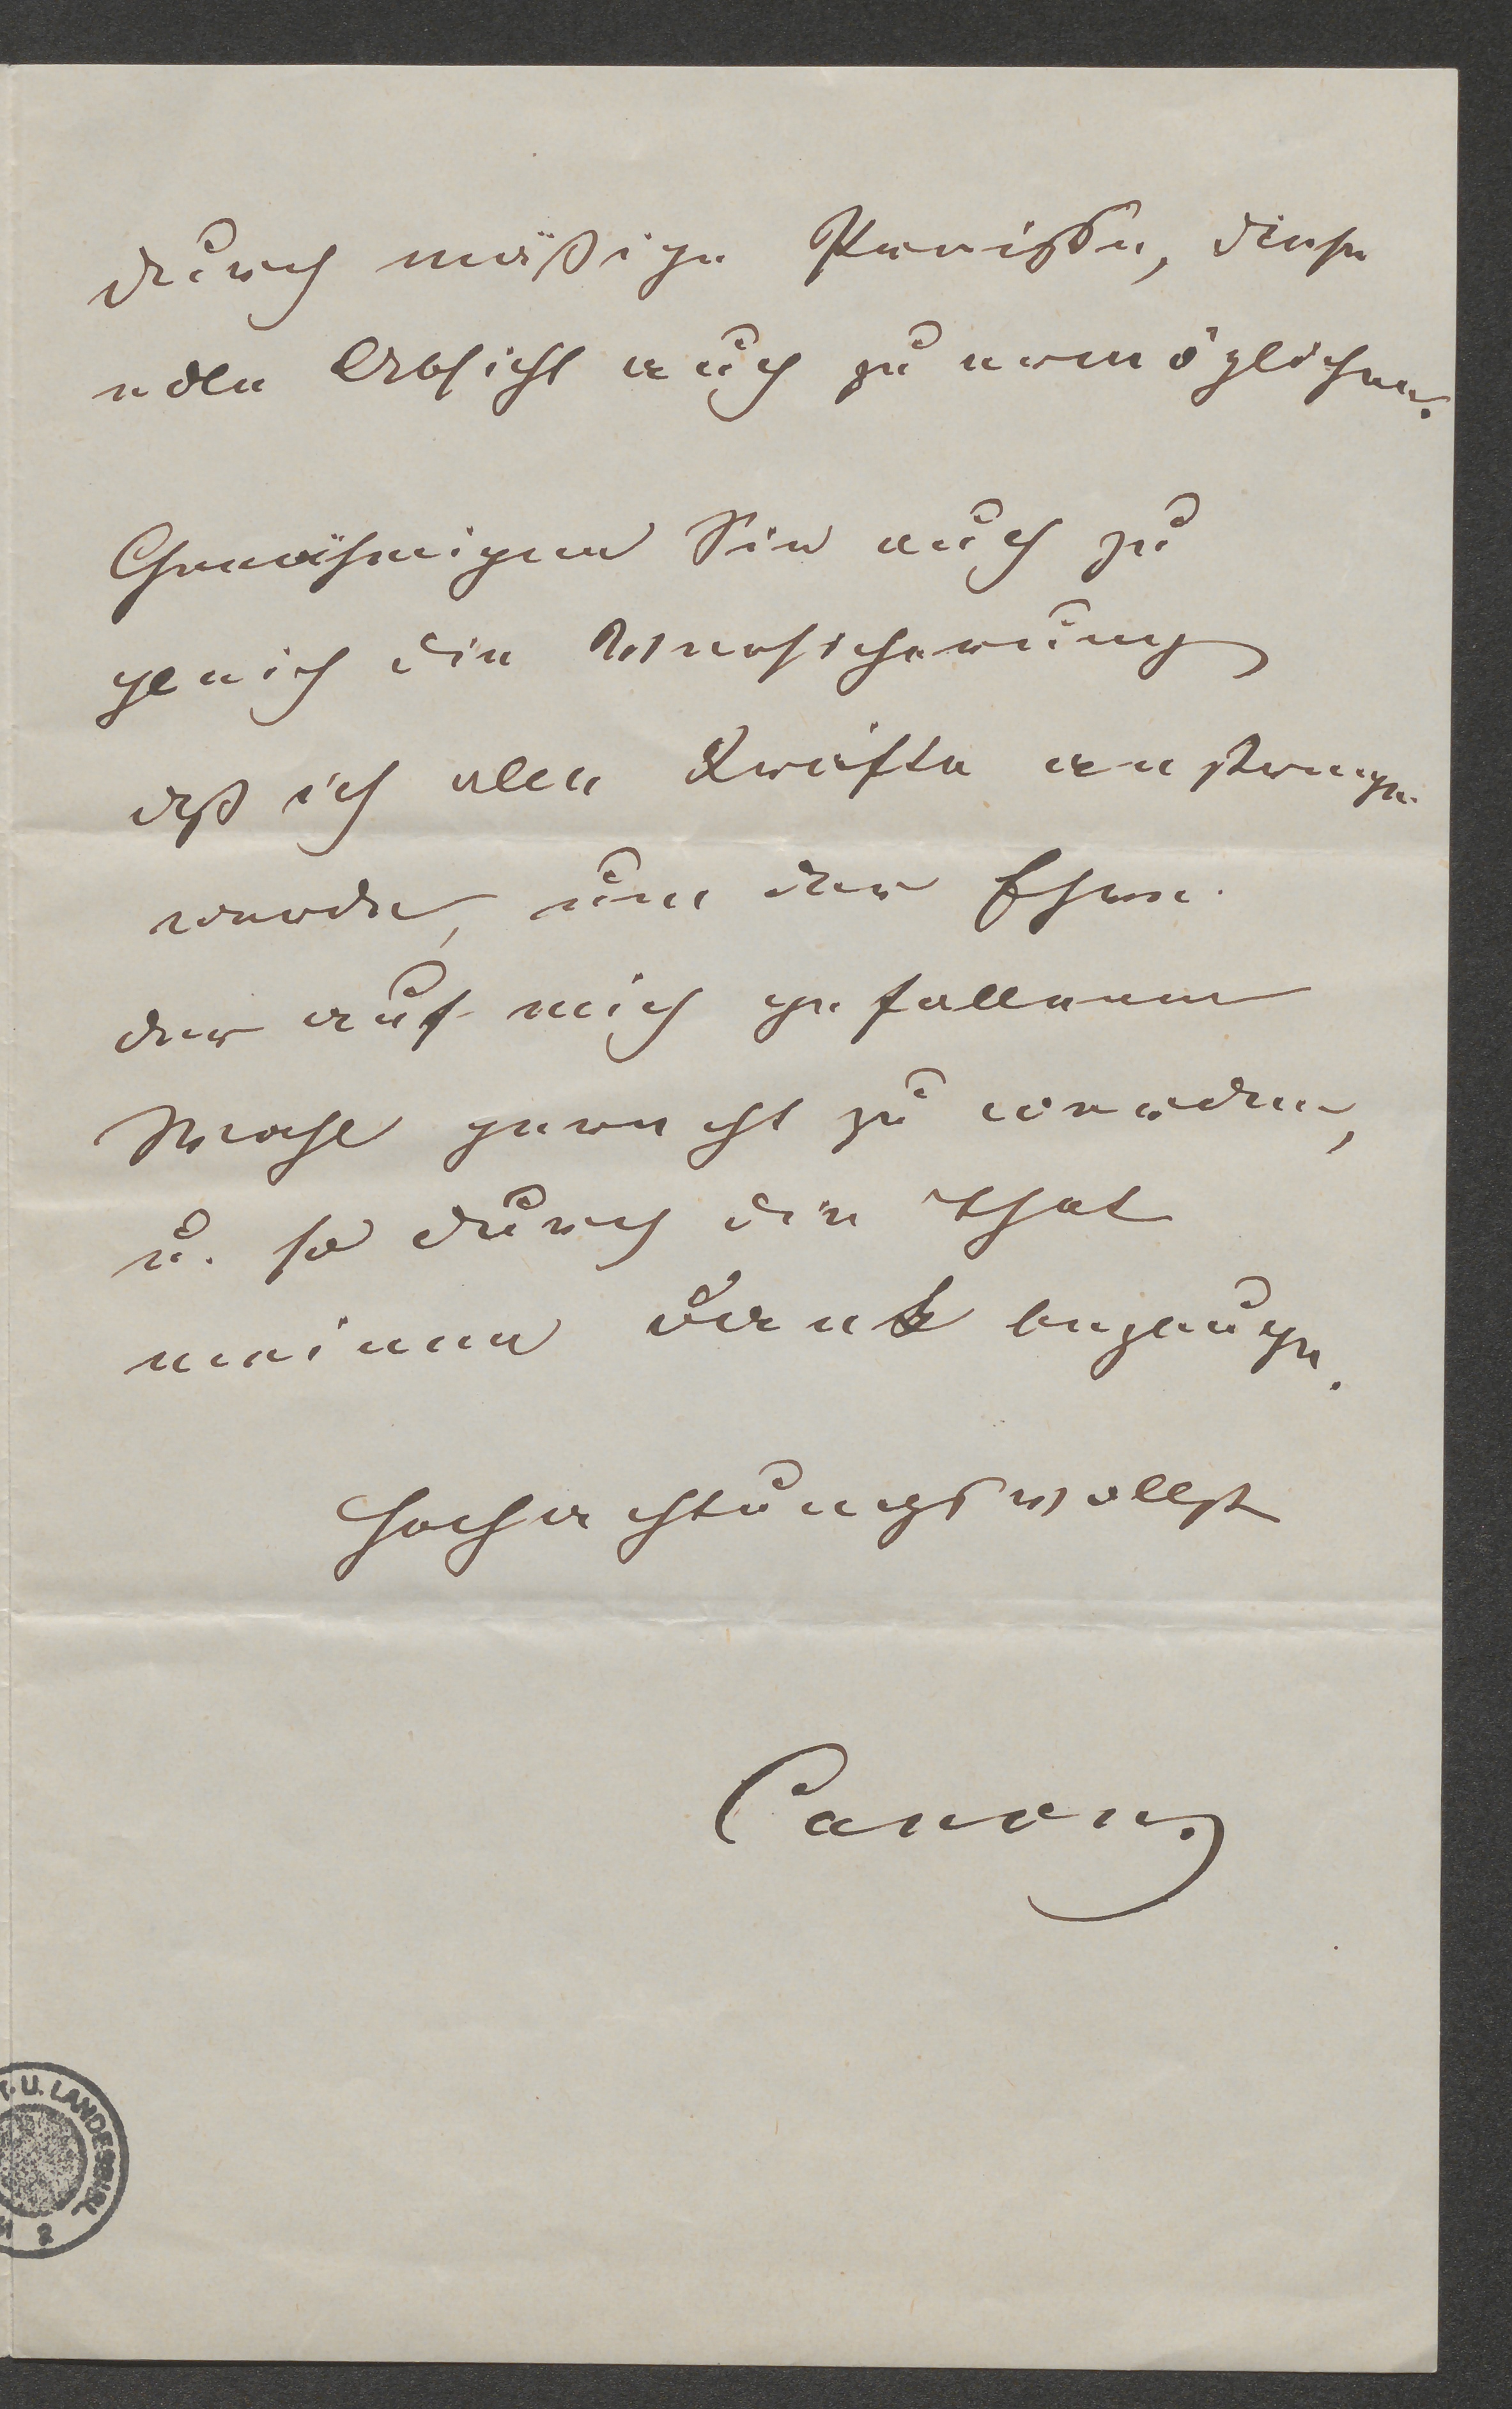 durch mäßige Preise, diese
edle Absicht auch zu ermöglichen.
Genähmigen Sie auch zu
gleich die Versicherung
daß ich alle Kräfte anstrenge
werde, um der Ehre
der auf mich gefallenen
Wahl gerecht zu werden,
u. so durch die That
meinen Dank bezeuge.
Hochachtungsvollst
Canon.
T. U. LANDESBIBL